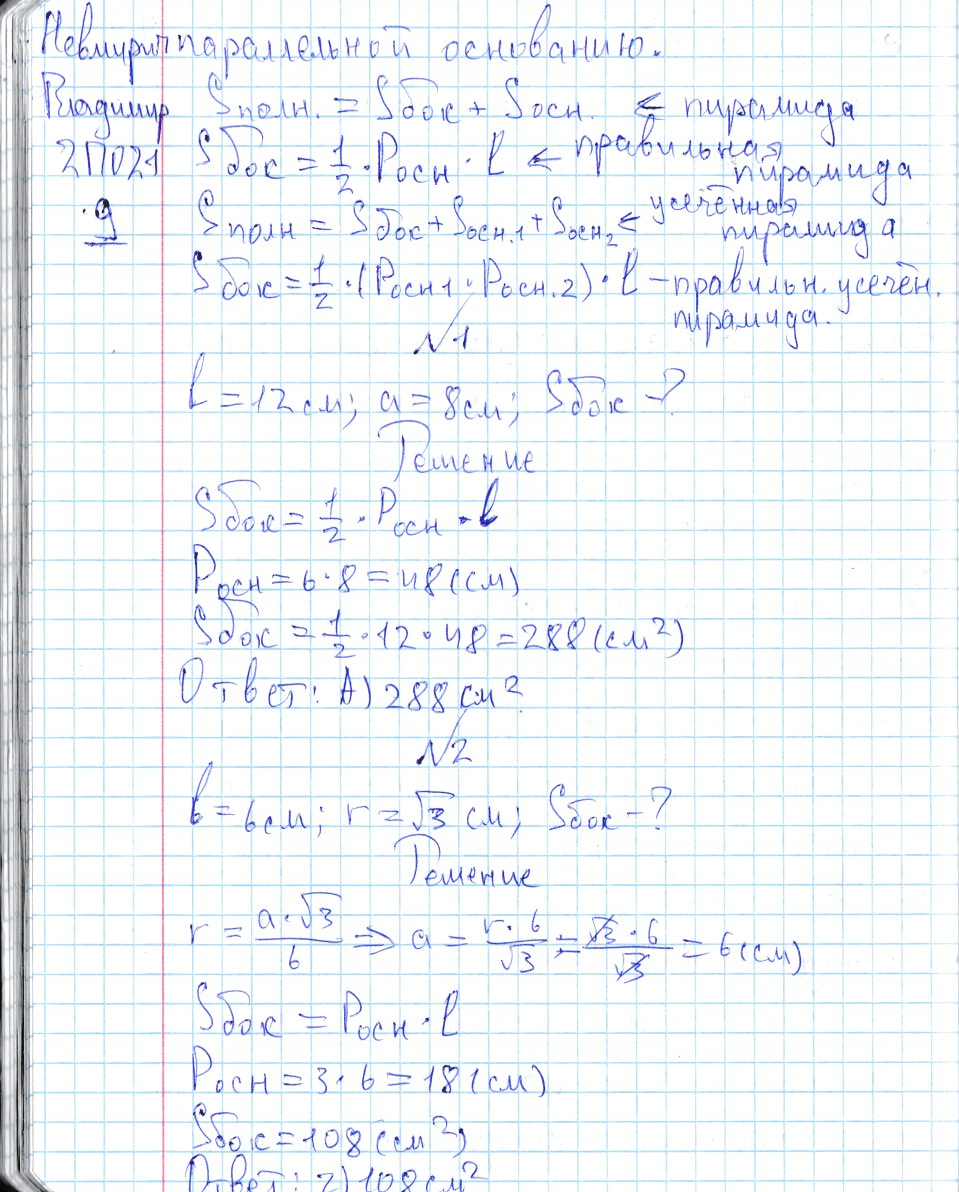 Невмирич параллельной основанию.
Владимир Sполн. = Sбок + Sосн. ← пирамида
2П021 Sбок = 1/2 · Pосн · l ← правильная пирамида
9 Sполн = Sбок + Sосн.1 + Sосн2 ← усечённая пирамида
Sбок = 1/2 · (Pосн1 · Pосн.2) · l – правильн. усечён.
пирамида.
№1
l = 12 см; a = 8 см; Sбок – ?
Решение
Sбок = 1/2 · Pосн · l
Pосн = 6 · 8 = 48 (см)
Sбок = 1/2 · 12 · 48 = 288 (см²)
Ответ: А) 288 см²
№2
l = 6 см; r = √3 см; Sбок – ?
Решение
r = a·√3/6 ⇒ a = r·6/√3 = √3·6/√3 = 6 (см)
Sбок = Pосн · l
Pосн = 3 · 6 = 18 (см)
Sбок = 108 (см²)
Ответ: 2) 108 см²